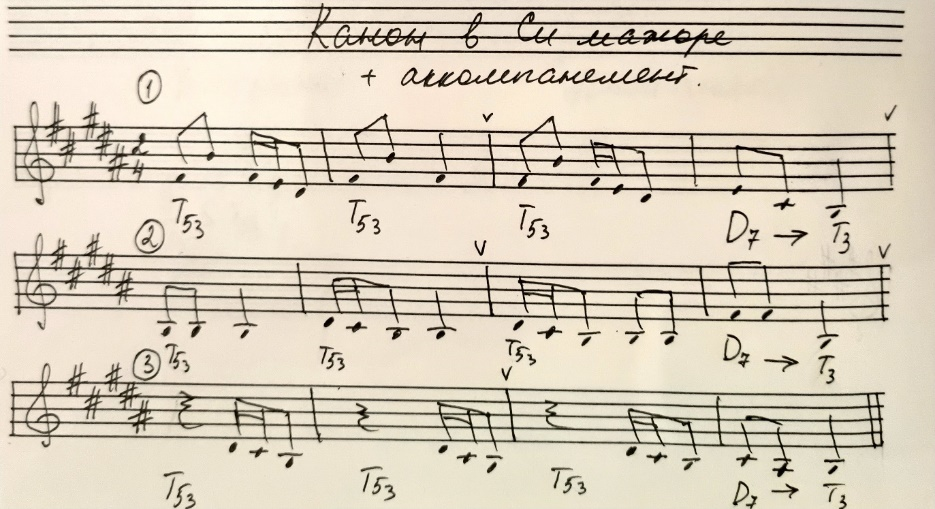 Канон в Си мажоре
+ аккомпанемент.
1
2
4
T53 T53 T53 D7 → T3
2
T53 T53 T53 D7 → T3
3
T53 T53 T53 D7 → T3